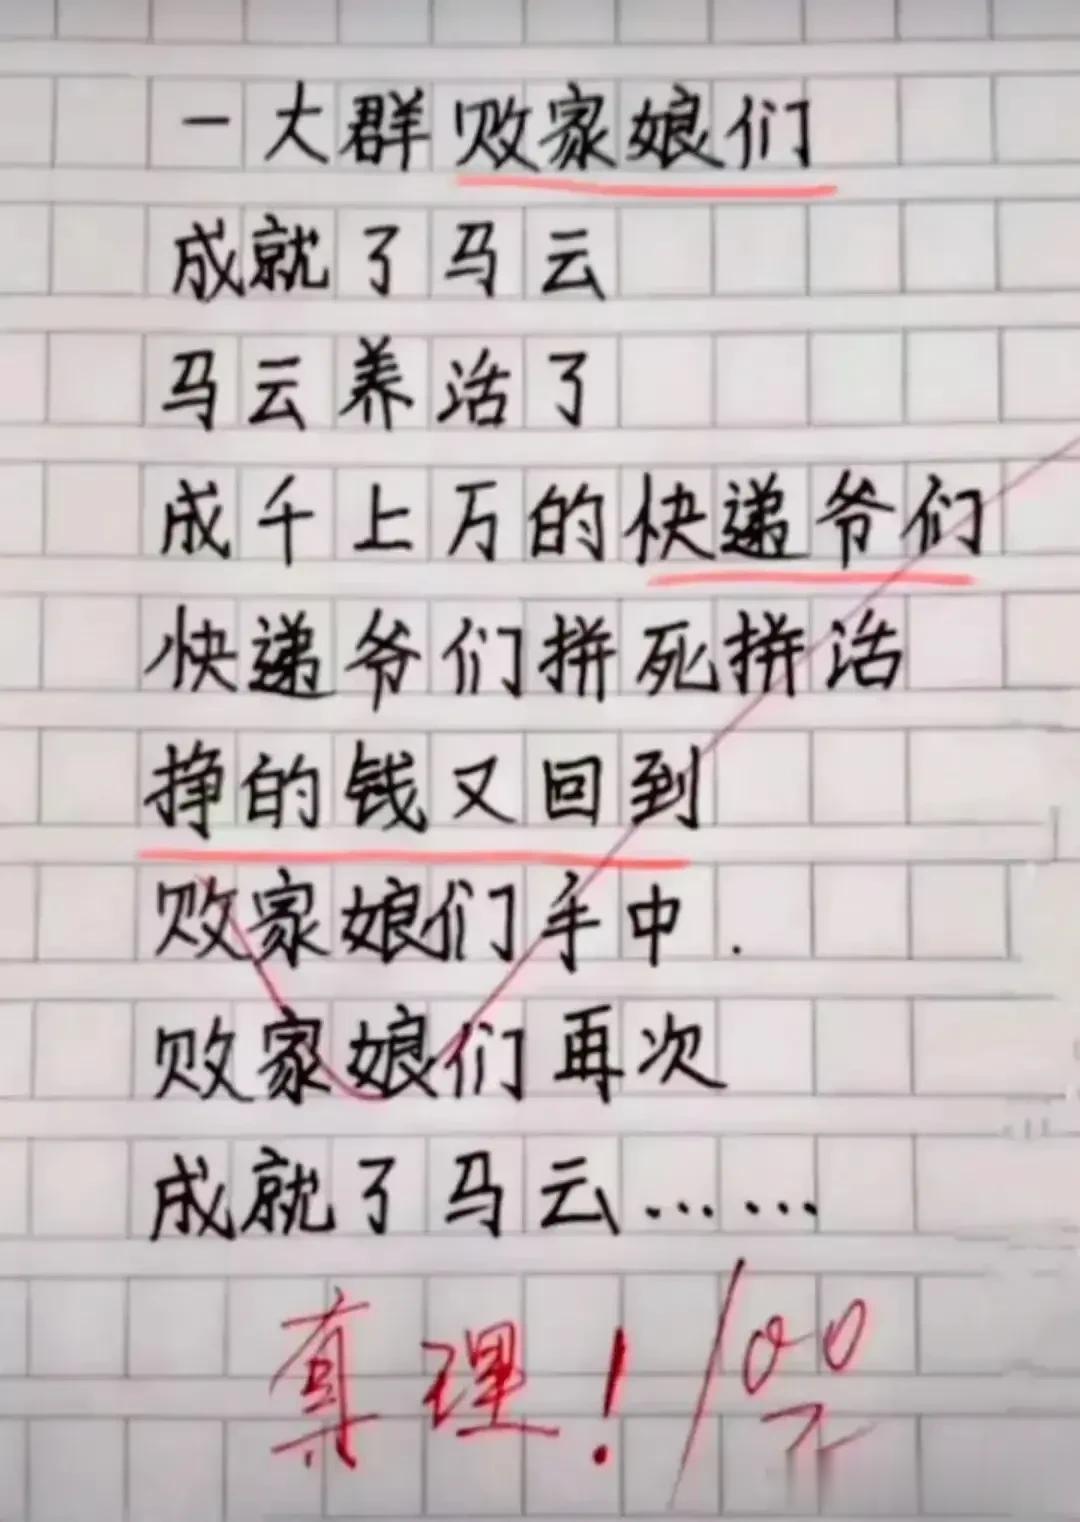 一大群败家娘们
成就了马云
马云养活了
成千上万的快递爷们
快递爷们拼死拼活
挣的钱又回到
败家娘们手中.
败家娘们再次
成就了马云……
真理！100